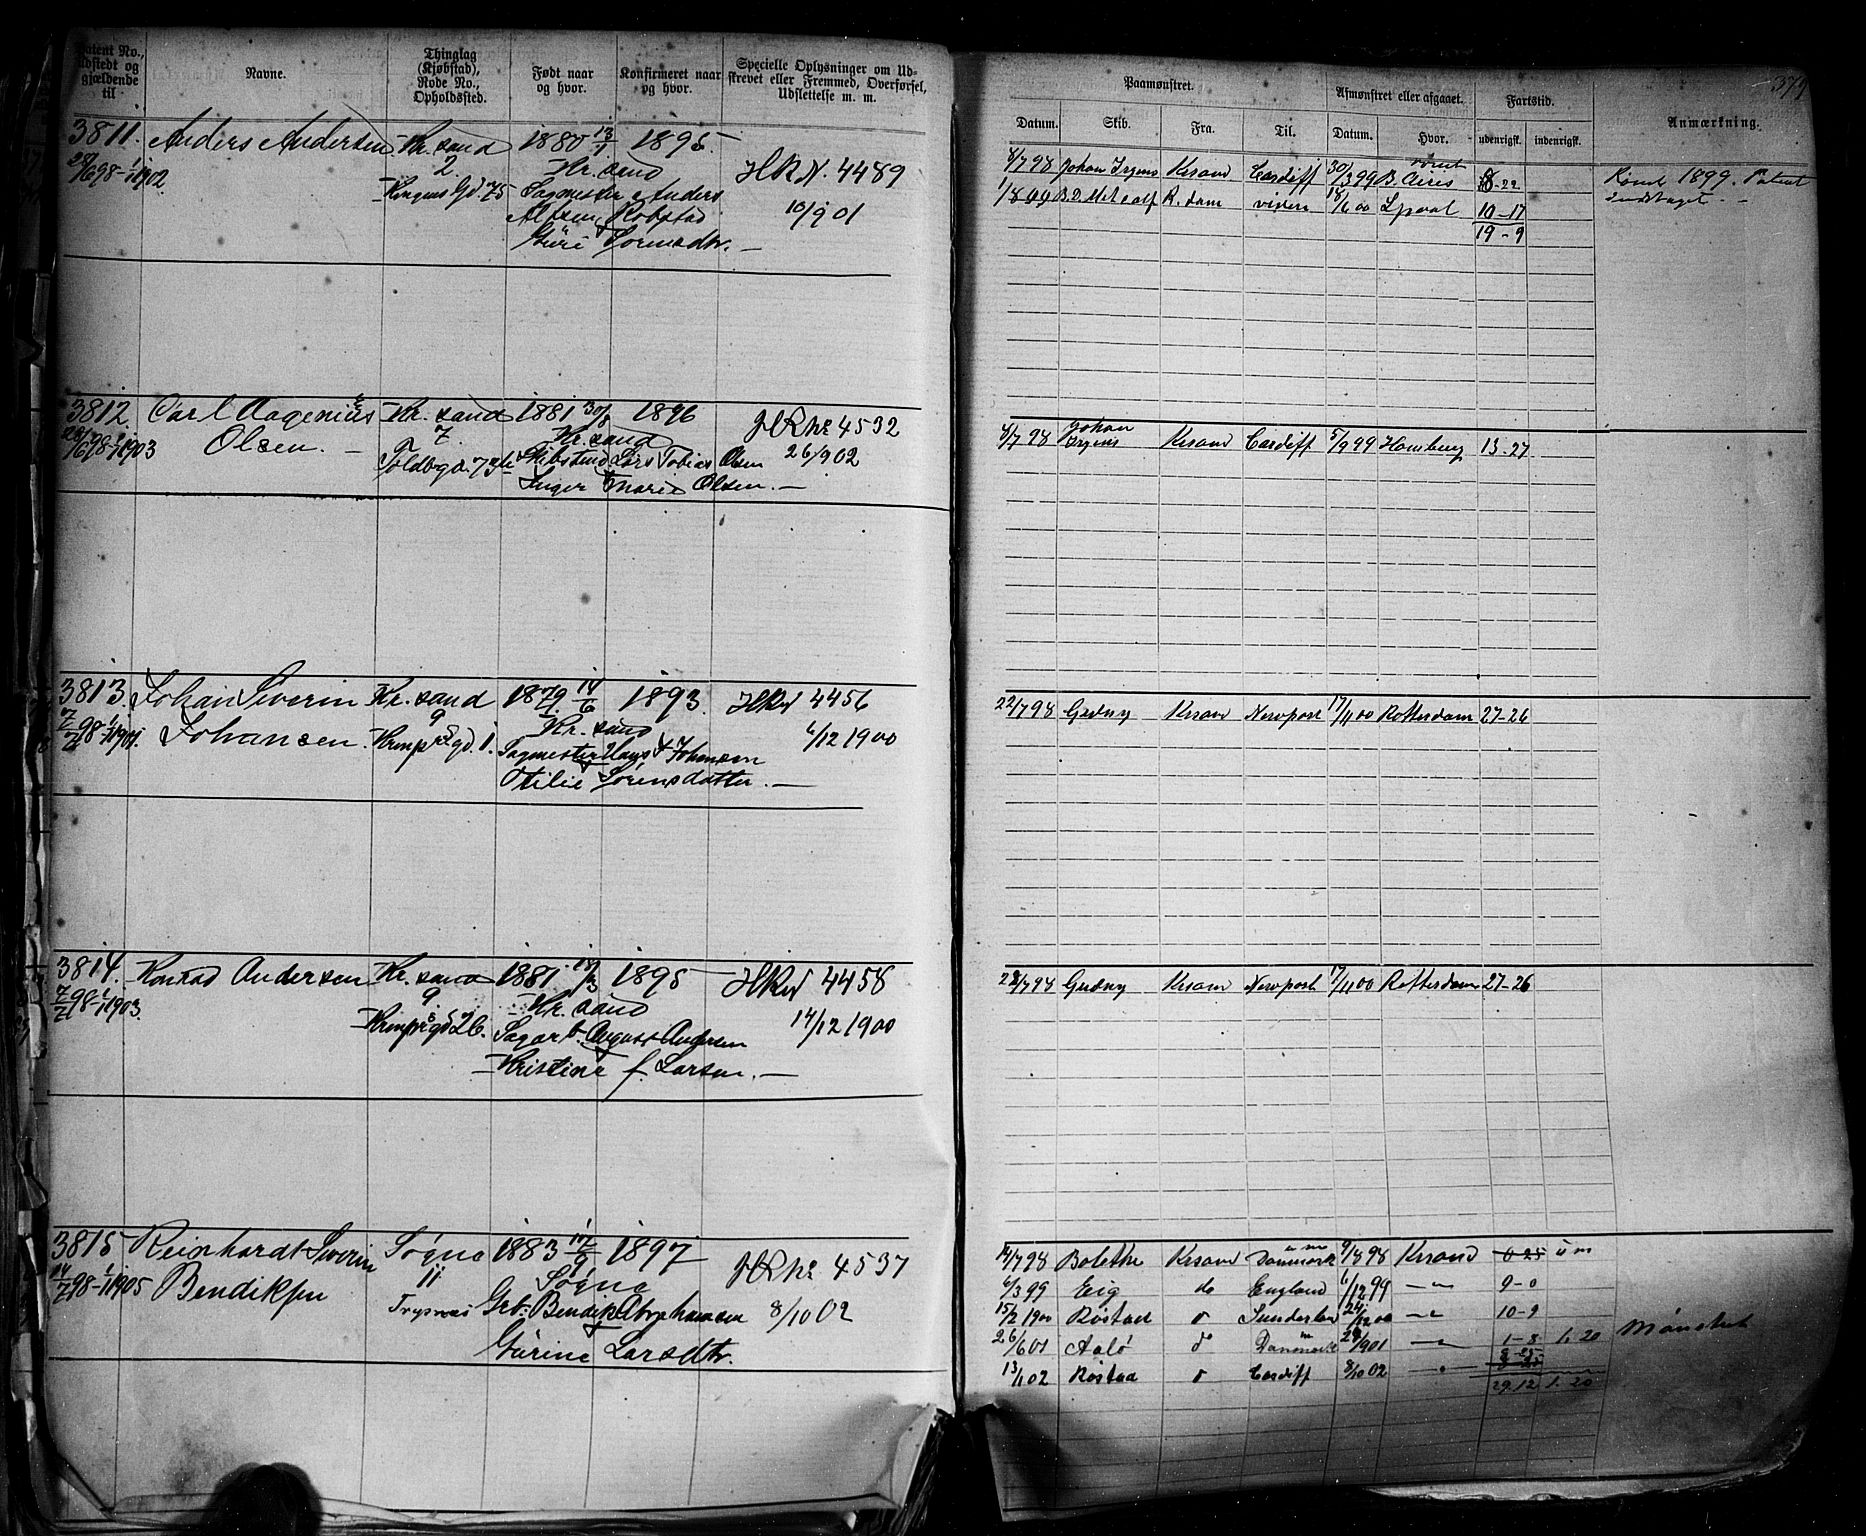 Patent No., udstedt og gjældende til
Navne.
Thinglag (Kjøbstad), Rode No., Opholdssted.
Født naar og hvor.
Konfirmeret naar og hvor.
Specielle Oplysninger om Udskrevet eller Fremmed, Overførsel, Udslettelse m. m.
Paamønstret.
Datum. Skib. Fra. Til.
Afmønstret eller afgaaet.
Datum. Hvor.
Fartstid.
udenrigsk. indenrigsk.
Anmærkning.
379
3811. Anders Andersen Kr. sand 1880 13/1 1895.
28/6 98 - 1/1 1902 2. Kr. sand HRN 4489
Kongens Gd 75 Sagmester Anders
Alfsen Robstad 10/9 01
Guri Sørensdtr. —
4/7 98 Johan Irgens Krsand Cardiff 30/3 99 B. Aires 8-22 Rømt 1899. Patent
1/8 99 B. D. Metcalf R.dam videre 18/6 00 Lpool 10-17 indtaget. -
19-9
3812. Carl Aagenius Kr. sand 1881 30/8 1896
28/6 98 - 1/1 1903 Olsen. — 7. Kr. sand HRN 4532
Toldbgd. 73 Skibstmd Lars Tobias Olsen 26/9 02
Inger Marie Olsen. —
4/7 98 Johan Irgens Krsand Cardiff 5/9 99 Hamburg 13-27
3813. Johan Severin Kr. sand 1879. 14/6 1893. HRN 4456
7/7 98 - 1/1 1901. Johansen. 9. Kr. sand 4/12 1900
Kronprs gd. 1. Sagmester Hans Johansen
Otilie Sørensdatter. —
22/7 98 Gedny Krsand Newport 17/11 00 Rotterdam 27-26
3814. Konrad Andersen Kr. sand 1881 18/3 1895 HRN 4458
7/7 98 - 1/1 1903. 9. Kr. sand 14/12 1900
Kronprs gd 26. Sagarb. August Andersen
Kristine f. Larsen. —
22/7 98 Gedny Krsand Newport 17/11 00 Rotterdam 27-26
3815 Reinhardt Severin Søgne 1883 17/9 1897
14/7 98 - 1/1 1905 Bendiksen 11 Søgne HRN 4537
Trysnæs Gbr. Bendik Abrahamsen 8/10 02
Gurine Larsdtr.
14/7 98 Bolethe Krsand Danmark 9/8 98 Krsand 0-25
4/3 99 Eig do England 1/12 99 9-0
15/2 1900 Røstad Sunderland 24/12 00 10-9
26/6 01 Aalø Danmark 901 1-8 1.20 Mønstret
13/1 02 Røstad Cardiff 8/10 02
29.12 1.20